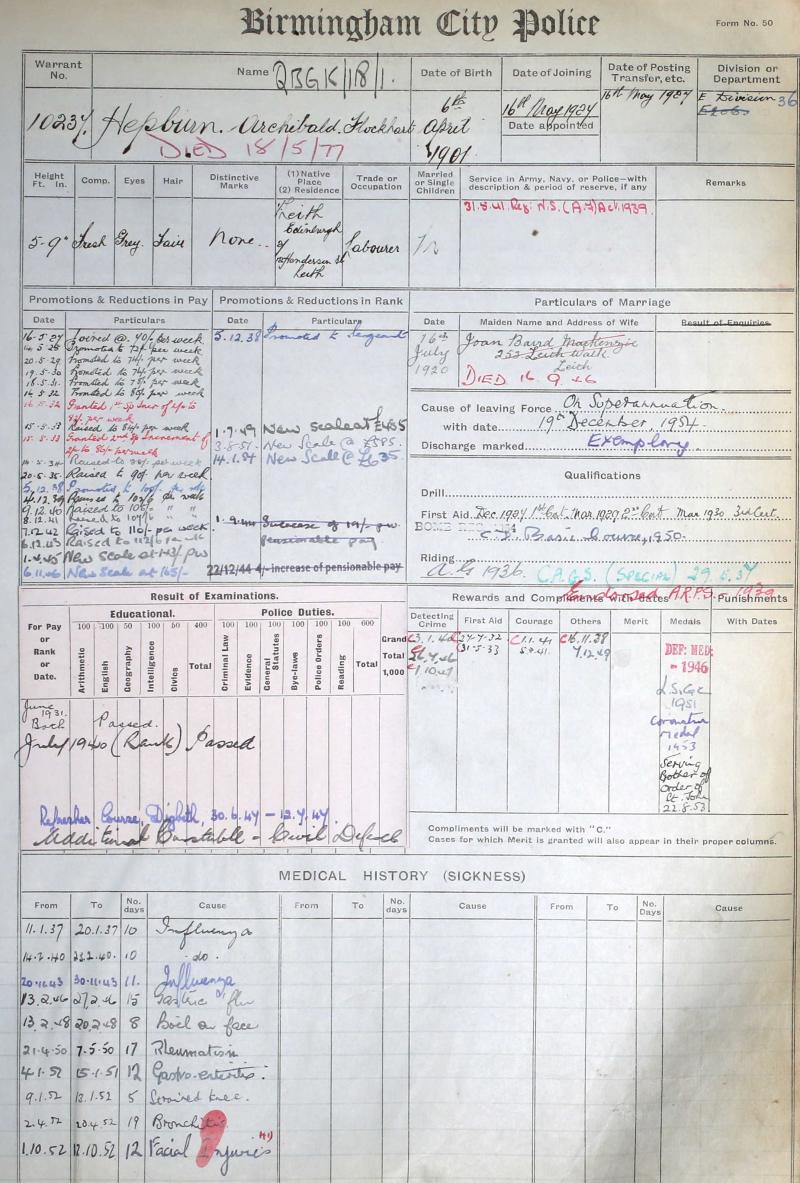 Birmingham City Police
Form No. 50
Warrant No.
Name QBGK/18/1.
Date of Birth
Date of Joining
Date of Posting Transfer, etc.
Division or Department
10237
Hepburn. Archibald. Flockhart
DIED 18/5/77
6th April 1901
16th May 1927
Date appointed
16th May 1927
E Division 36
Height Ft. In.
Comp.
Eyes
Hair
Distinctive Marks
(1) Native Place
(2) Residence
Trade or Occupation
Married or Single Children
Service in Army, Navy, or Police—with description & period of reserve, if any
Remarks
5-9"
Fresh
Grey.
Fair
None.
Leith
Edinburgh
Henderson St
Leith
Labourer
31.5.41. Reg: N.S. (A.F) Act, 1939.
Promotions & Reductions in Pay
Promotions & Reductions in Rank
Particulars of Marriage
Date
Particulars
Date
Particulars
Date
Maiden Name and Address of Wife
Result of Enquiries
16-5-27 Joined @. 70/- per week
14.5.28 Promoted to 72/- per week
20.5.29 Promoted to 74/- per week
19.5.30 Promoted to 76/- per week
18.5.31. Promoted to 78/- per week
16.5.32 Promoted to 80/- per week
16.5.32 Granted 1st Sp Incr of 2/- to
82/- per week
15.5.33 Raised to 84/- per week
15.5.33 Granted 2nd Sp Increment of
2/- to 86/- per week
14.5.34 Raised to 88/- per week
20.5.35. Raised to 90/- per week
5.12.38 Promoted to 100/- per wk
4.12.39 Raised to 102/6 per week
9.12.40 Raised to 105/- " "
8.12.41 Raised to 107/6 " "
7.12.42 Raised to 110/- per week
6.12.43 Raised to 112/6 per wk
1.4.45 New Scale at 143/- pw
6.11.46 New Scale at 165/-
5.12.38 Promoted to Sergeant
1.7.49 New scale at £455
3.8.51 New Scale @ £585.
14.1.54 New Scale @ £635.
pensionable pay
22/12/44 4/- increase of pensionable pay
16th July 1920
Joan Baird Mackenzie
252 Leith Walk
Leith
DIED 16 9 46
Cause of leaving Force On Superannuation.
with date 19th December, 1954.
Discharge marked Exemplary
Qualifications
Drill
First Aid. Dec. 1927 1st Cert. Mar 1929 2nd Cert Mar 1930 3rd Cert.
C.D. Basic Course, 1950.
Riding
A.G 1936. C.A.G.S. (Special) 29.6.37
Endorsed A.R.P.S. 1939
Result of Examinations.
Educational.
Police Duties.
For Pay or Rank or Date.
100 100 50 100 50 400
100 100 100 100 100 100 600
Grand Total 1,000
Arithmetic
English
Geography
Intelligence
Civics
Total
Criminal Law
Evidence
General Statutes
Bye-laws
Police Orders
Reading
Total
June 1931. Both Passed.
July 1940 (Rank) Passed
Refresher Course, Digbeth, 30.6.47 - 12.7.47.
Additional Constable - Civil Defence
Rewards and Compliments with dates
Punishments
Detecting Crime
First Aid
Courage
Others
Merit
Medals
With Dates
C3.1.40
27-7-32
C31-5-33
C1.1.41
5.9.41.
C16.11.38
7.12.49
DEF: MED:
- 1946
L.S.&G.C
1951
Coronation
Medal
1953
Serving
Brother of
Order of
St. John
22.8.53
Compliments will be marked with "C."
Cases for which Merit is granted will also appear in their proper columns.
MEDICAL HISTORY (SICKNESS)
From To No. days Cause
From To No. days Cause
From To No. Days Cause
11.1.37 20.1.37 10 Influenza
14-2-40 23.2.40. 10 do.
20.11.43 30.11.43 11. Influenza
13.2.46 27.2.46 15 Gastric flu
13.2.48 20.2.48 8 Boil on face
21.4.50 7.5.50 17 Rheumatism
4.1.52 15.1.51 12 Gastro-enteritis.
9.1.52 13.1.52 5 Strained knee.
2.4.52 20.4.52 19 Bronchitis
1.10.52 12.10.52 12 Facial Injuries